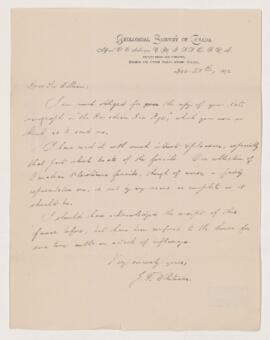 GEOLOGICAL SURVEY OF CANADA
Dear Sir William,
I am much obliged for the copy of your late
monograph on the "Canadian Ice Age," which you were so
kind as to send me.
I have read it with much interest & pleasure, especially
that part which treats of the fossils. Our collection of
Canadian Pleistocene fossils, though of course a fairly
representative one, is not by any means as complete as it
should be.
I should have acknowledged the receipt of this
favour before, but have been confined to the house for
some time with an attack of influenza.
Very sincerely yours,
J. F. Whiteaves.